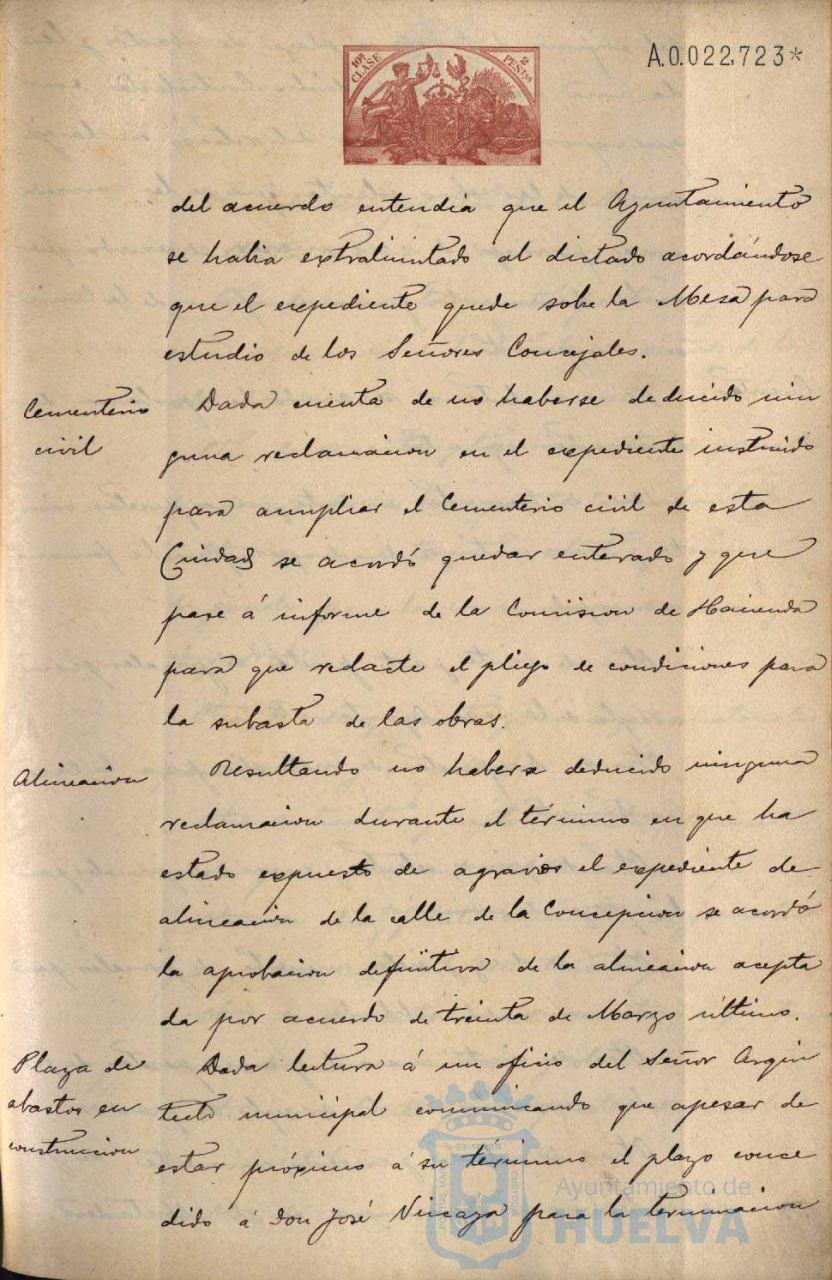 10ª CLASE
2 PESTAS
A.0.022,723*
del acuerdo entendia que el Ayuntamiento
se habia extralimitado al dictado acordándose
que el expediente quede sobre la Mesa para
estudio de los Señores Concejales.
Cementerio
civil
Dada cuenta de no haberse deducido nin
guna reclamacion en el expediente instruido
para ampliar el Cementerio civil de esta
Ciudad se acordó quedar enterado y que
pase á informe de la Comision de Hacienda
para que redacte el pliego de condiciones para
la subasta de las obras.
Alineacion
Resultando no haberse deducido ninguna
reclamacion durante el término en que ha
estado expuesto de agravios el expediente de
alineacion de la calle de la Concepcion se acordó
la aprobacion definitiva de la alineacion acepta
da por acuerdo de treinta de Marzo último.
Plaza de
abastos en
construccion
Dada lectura á un oficio del Señor Arqui
tecto municipal comunicando que apesar de
estar próximo á su término el plazo conce
dido á Don José Vizcaya para la terminacion
Ayuntamiento de
HUELVA